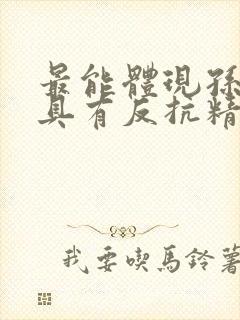 最能體現孫
具有反抗精
我要喫馬鈴薯